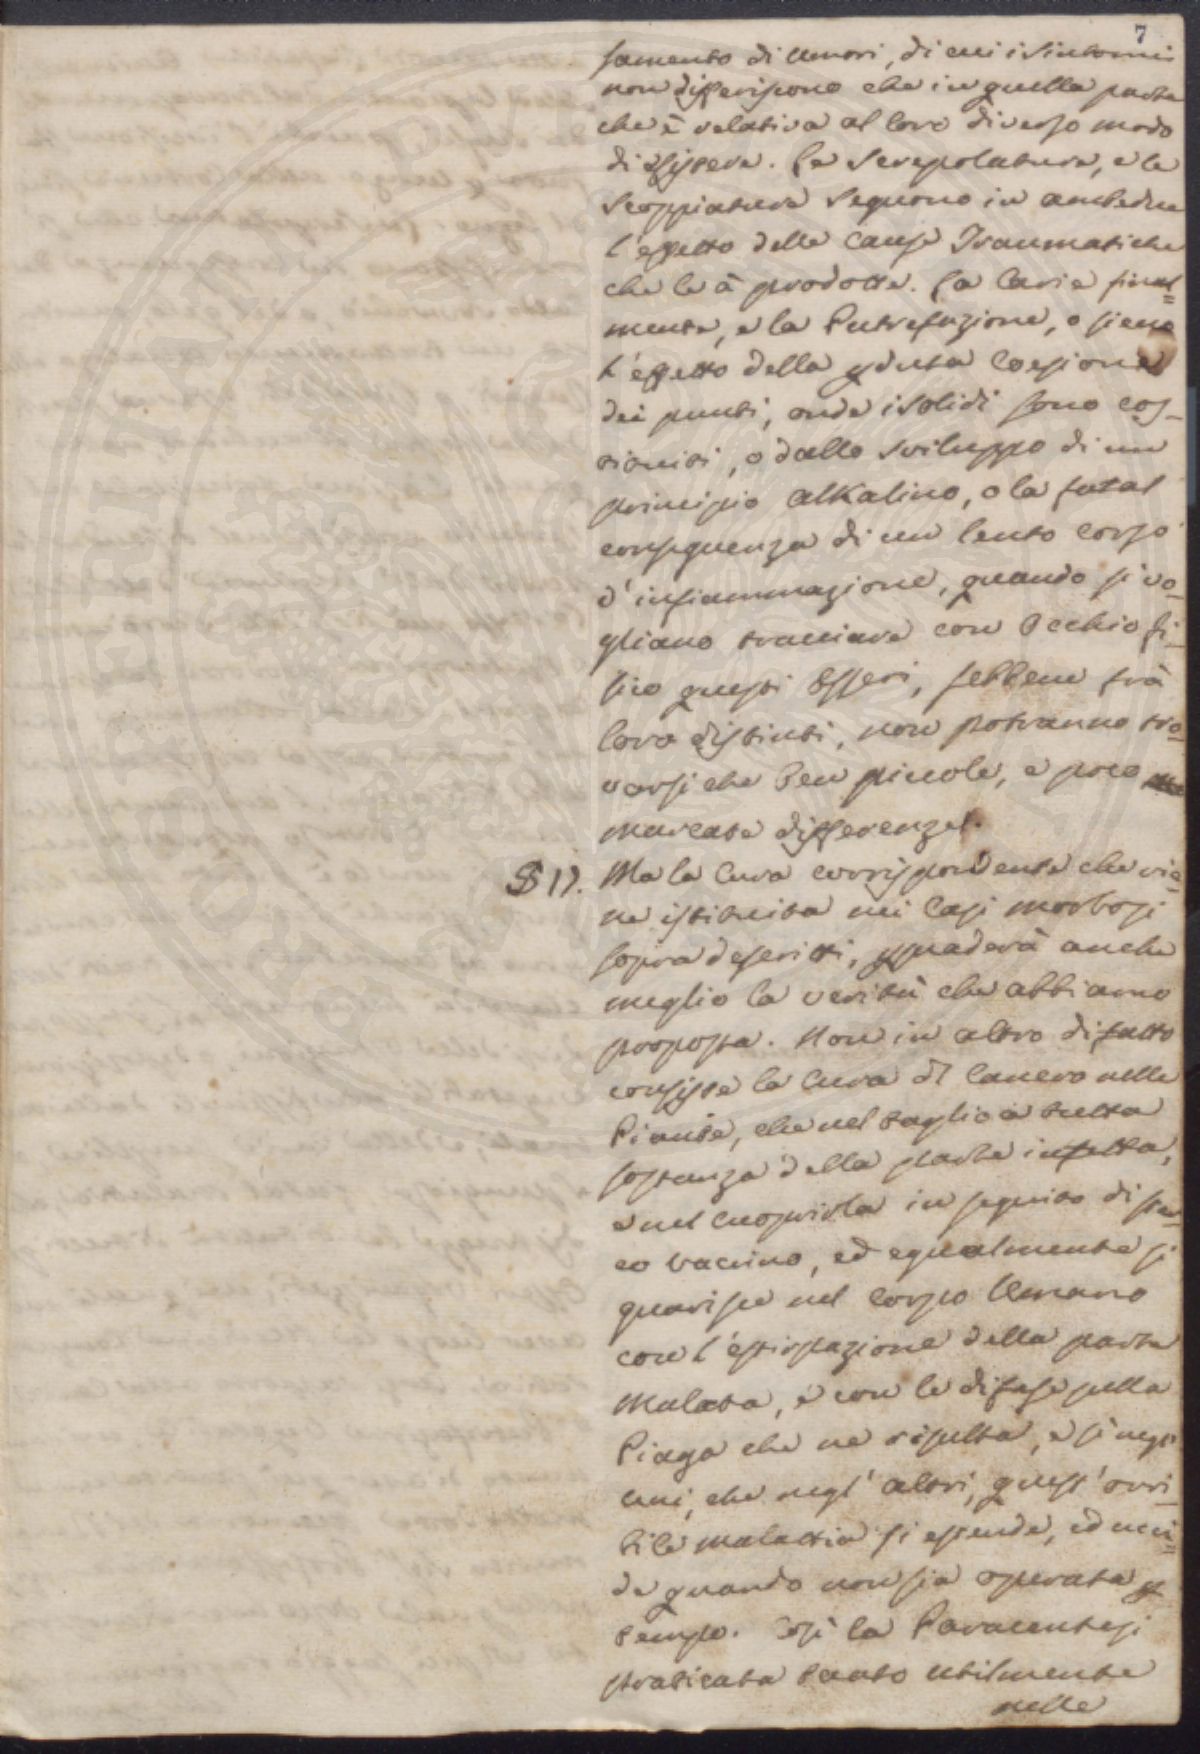 7
samento di Umori, di cui i Sintomi
non differiscono che in quella parte
che è relativa al loro diverso modo
di esistere. La Screpolatura, e la
Scoppiatura seguono in ambedue
l'effetto delle cause Traumatiche
che le à prodotte. La Carie final=
mente, e la Putrefazione, o siene
l'effetto della pduta Coesione
dei punti, onde i solidi sono cos-
tituiti, o dallo sviluppo di un
principio alKalino, o la fatal
conseguenza di un lento corso
d'infiammazione, quando si vo-
gliano tracciare con Occhio fi-
sico questi Esseri, sebbene frà
loro distinti, non potranno tro-
varsi che ben piccole, e poco
marcate differenze.
§ 17. Ma la Cura corrispondente che vie-
ne istituita nei Casi morbosi
sopra descritti, psuaderà anche
meglio la verità che abbiamo
proposta. Non in altro difatto
consiste la Cura dl Cancro nelle
Piante, che nel taglio a tutta
sostanza della parte infetta,
e nel cuoprirla in seguito di ster-
co vaccino, ed egualmente si
guarisce nel Corpo Umano
con l'estirpazione della parte
Malata, e con le difese sulla
Piaga che ne risulta, e sì negl'
uni, che negl' altri, quest' orri-
bile malattia si estende, ed ucci=
de quando non sia operata p
tempo. Così la Paracentesi
praticata tanto utilmente
nelle